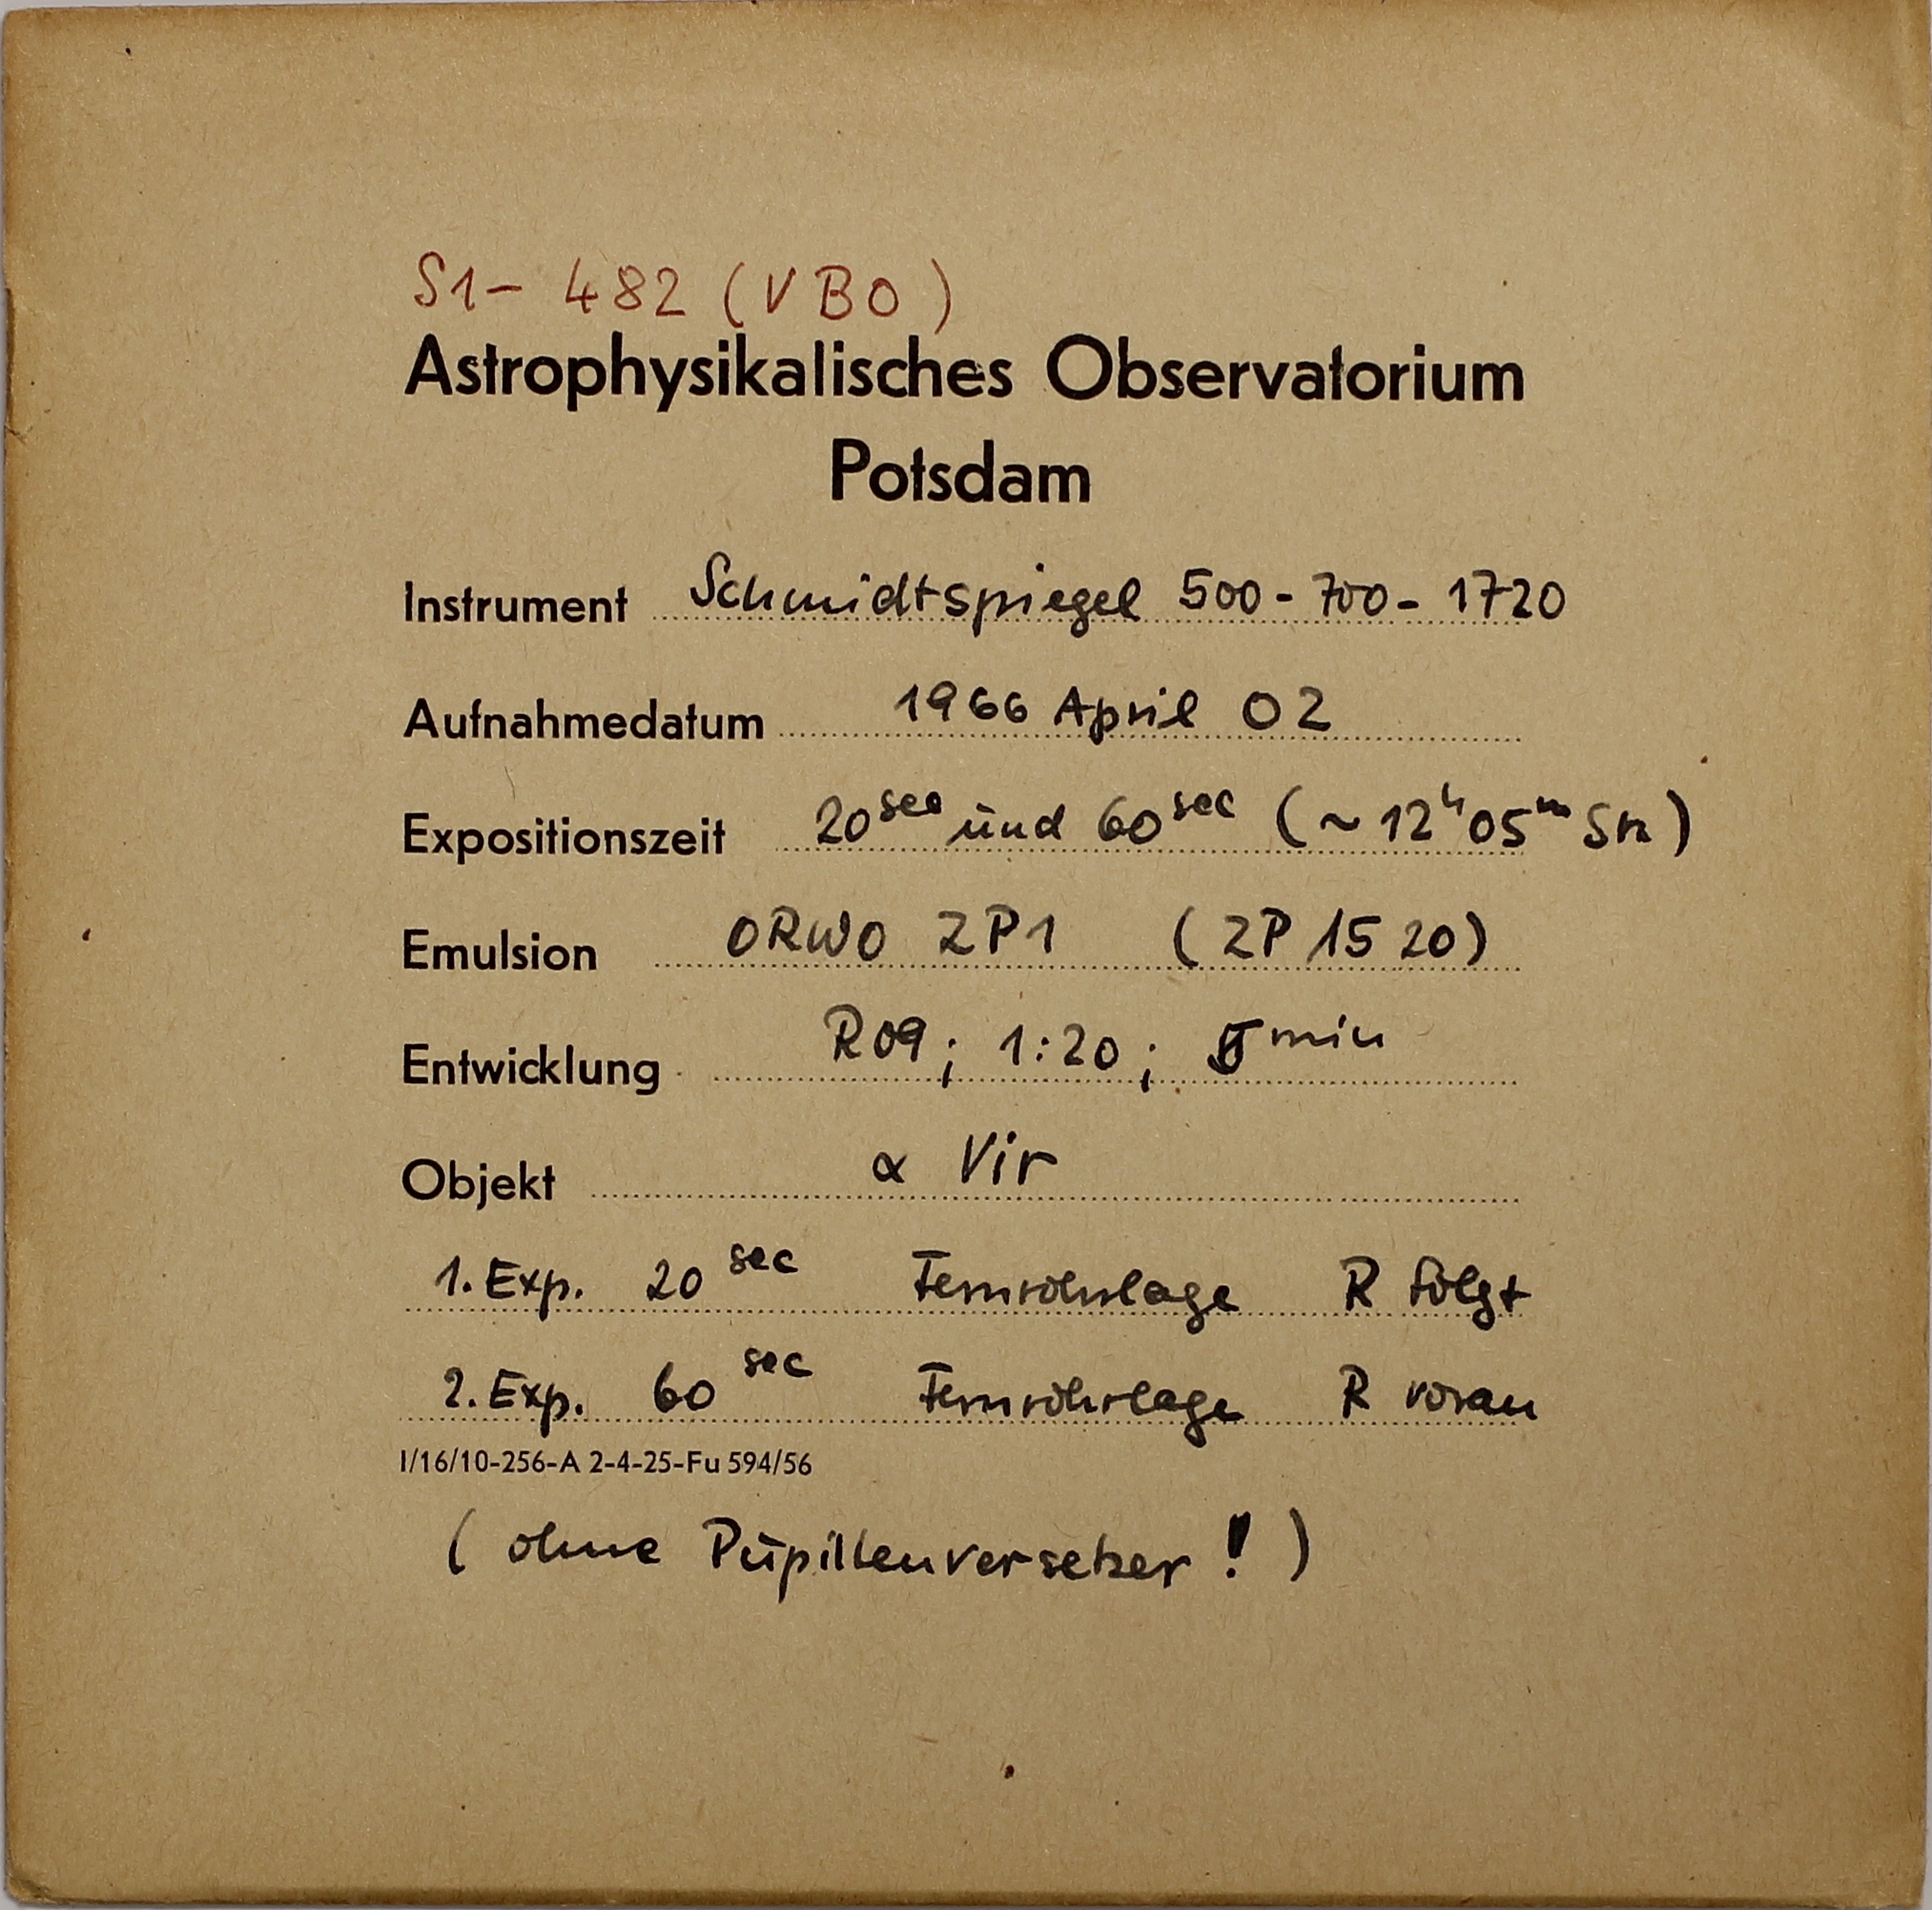 S1- 482 (VBO)
Astrophysikalisches Observatorium
Potsdam
Instrument Schmidtspiegel 500-700-1720
Aufnahmedatum 1966 April 02
Expositionszeit 20sec und 60sec (~12h05m Stz)
Emulsion ORWO ZP1 (ZP 1520)
Entwicklung R09; 1:20; 5min
Objekt α Vir
1. Exp. 20sec Fernrohrlage R folgt
2. Exp. 60sec Fernrohrlage R voran
I/16/10-256-A 2-4-25-Fu 594/56
(ohne Pupillenversetzer!)